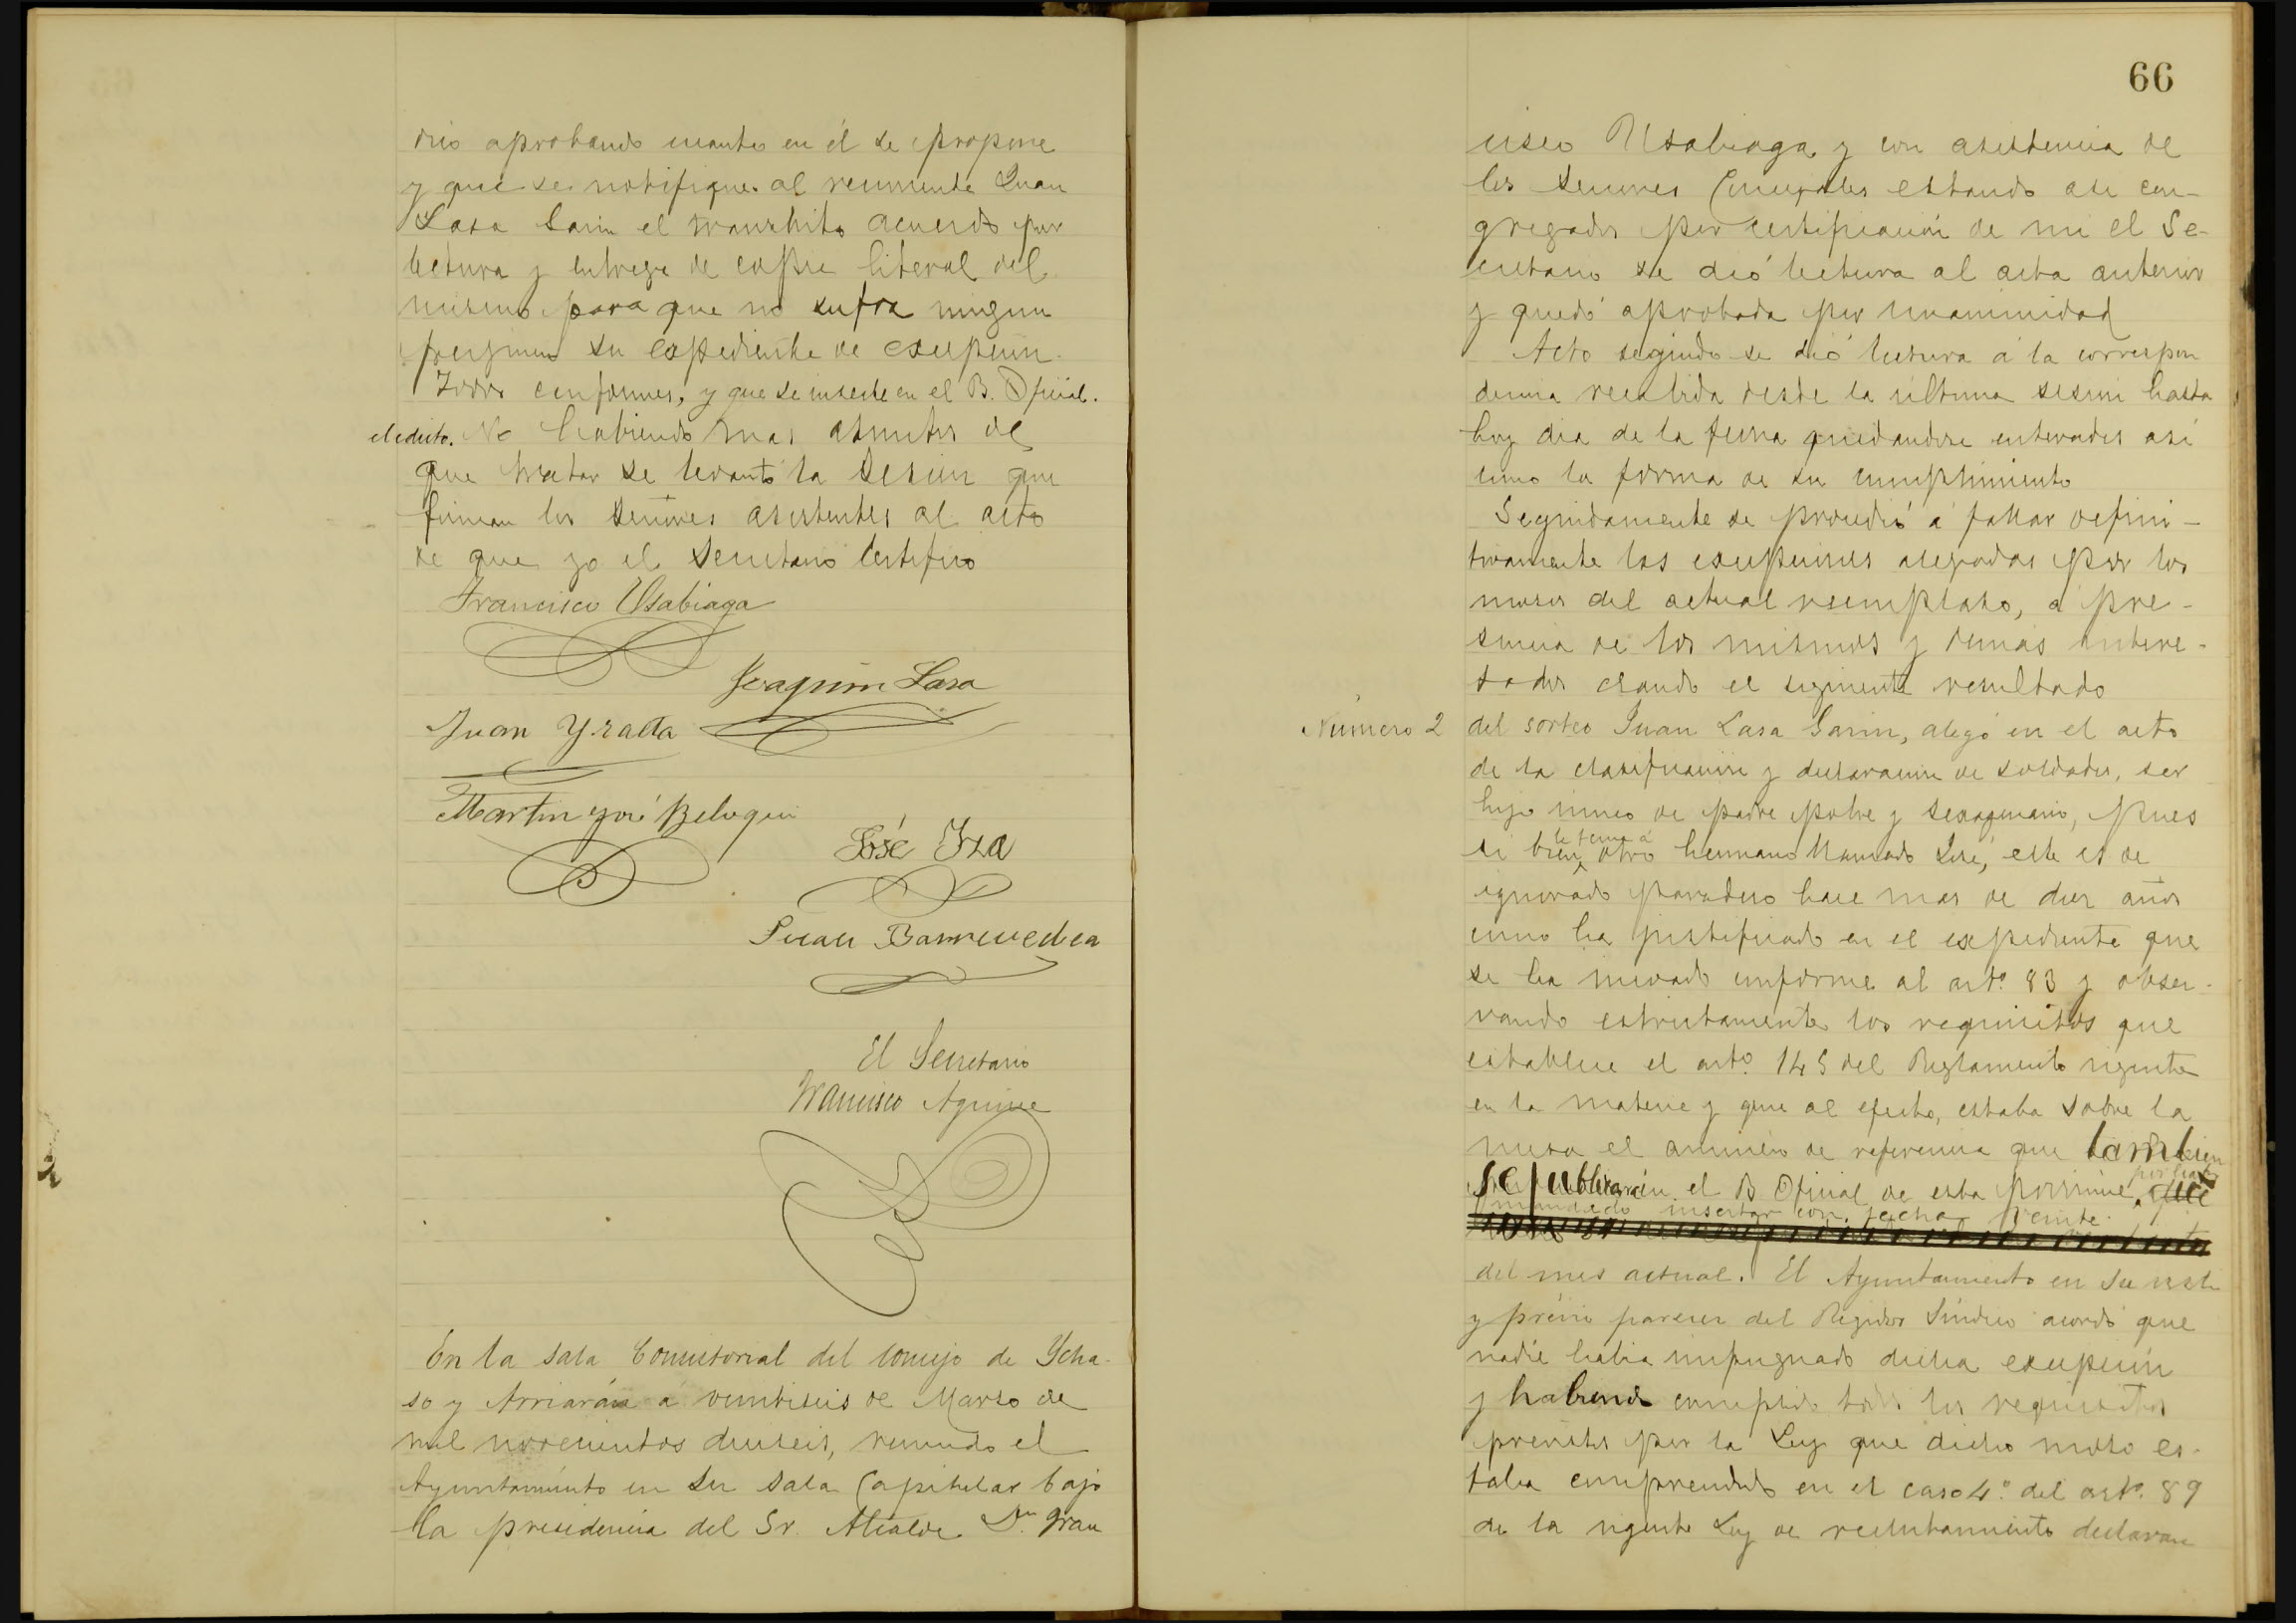 drió aprobando cuanto en él se propone
y que se notifique al recurrente Juan
Lasa Garin el transcrito acuerdo por
lectura y entrega de copia literal del
mismo para que no sufra ningun
perjuicio su expediente de excepcion.
Todos conformes, y que se inserte en el B. Oficial.
el edicto. No habiendo mas asuntos de
que tratar se levantó la sesion que
firman los señores asistentes al acto
de que yo el Secretario Certifico
Francisco Usabiaga
Joaquin Lasa
Juan Yraeta
Martin José Beloqui
José Iza
Juan Barrenechea
El Secretario
Francisco Aguirre
En la sala Consistorial del Concejo de Ycha-
so y Arriarán á veintiseis de Marzo de
mil novecientos dieciseis, reunido el
Ayuntamiento en su sala Capitular bajo
la presidencia del Sr. Alcalde Dn. Fran
66
cisco Usabiaga y con asistencia de
los señores Concejales estando asi con-
gregados por certificación de mi el Se-
cretario se dió lectura al acta anterior
y quedó aprobada por unanimidad
Acto seguido se dió lectura á la correspon
dencia recibida desde la última sesion hasta
hoy dia de la fecha quedandose enterados asi
como la forma de su cumplimiento
Seguidamente se procedió á fallar defini-
tivamente las excepciones alegadas por los
mozos del actual reemplazo, á pre-
sencia de los mismos y demás intere-
sados dando el siguiente resultado
Número 2 del sorteo Juan Lasa Garin, alegó en el acto
de la clasificación y declaracion de soldados, ser
hijo único de padre pobre y sexagenario, pues
le tenia á
si bien otro hermano llamado José, este es de
ignorado paradero hace mas de diez años
como ha justificado en el expediente que
se ha incoado conforme al artº. 83 y obser-
vando estrictamente los requisitos que
establece el artº. 145 del Reglamento vigente
en la materia y que al efecto, estaba sobre la
mesa el anuncio de referencia que tambien
se publicará en el B. Oficial de esta provincia, que
mandado insertar con fecha veinte
del mes actual. El Ayuntamiento en su vista
y prévio parecer del Regidor Síndico acordó que
nadie habia impugnado dicha excepción
y habiendo cumplido todos los requisitos
previstos por la Ley que dicho mozo es-
taba comprendido en el caso 4º. del artº. 89
de la vigente Ley de reclutamiento declaran